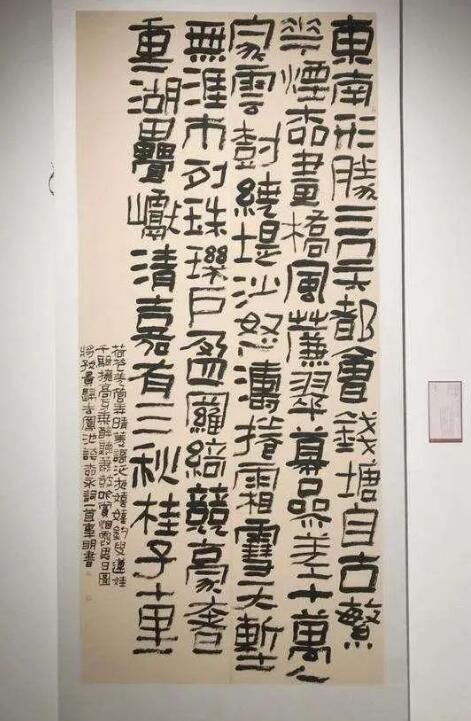 東南形勝三吳都會錢塘自古繁
華煙柳畫橋風簾翠幕參差十萬人
家雲樹繞堤沙怒濤捲霜雪天塹
無涯市列珠璣戶盈羅綺競豪奢
重湖疊巘清嘉有三秋桂子十里
荷花羌管弄晴菱謌泛夜嬉嬉釣叟蓮娃
千騎擁高牙乘醉聽簫鼓吟賞煙霞異日圖
將好景歸去鳳池誇柳永詞一首明書